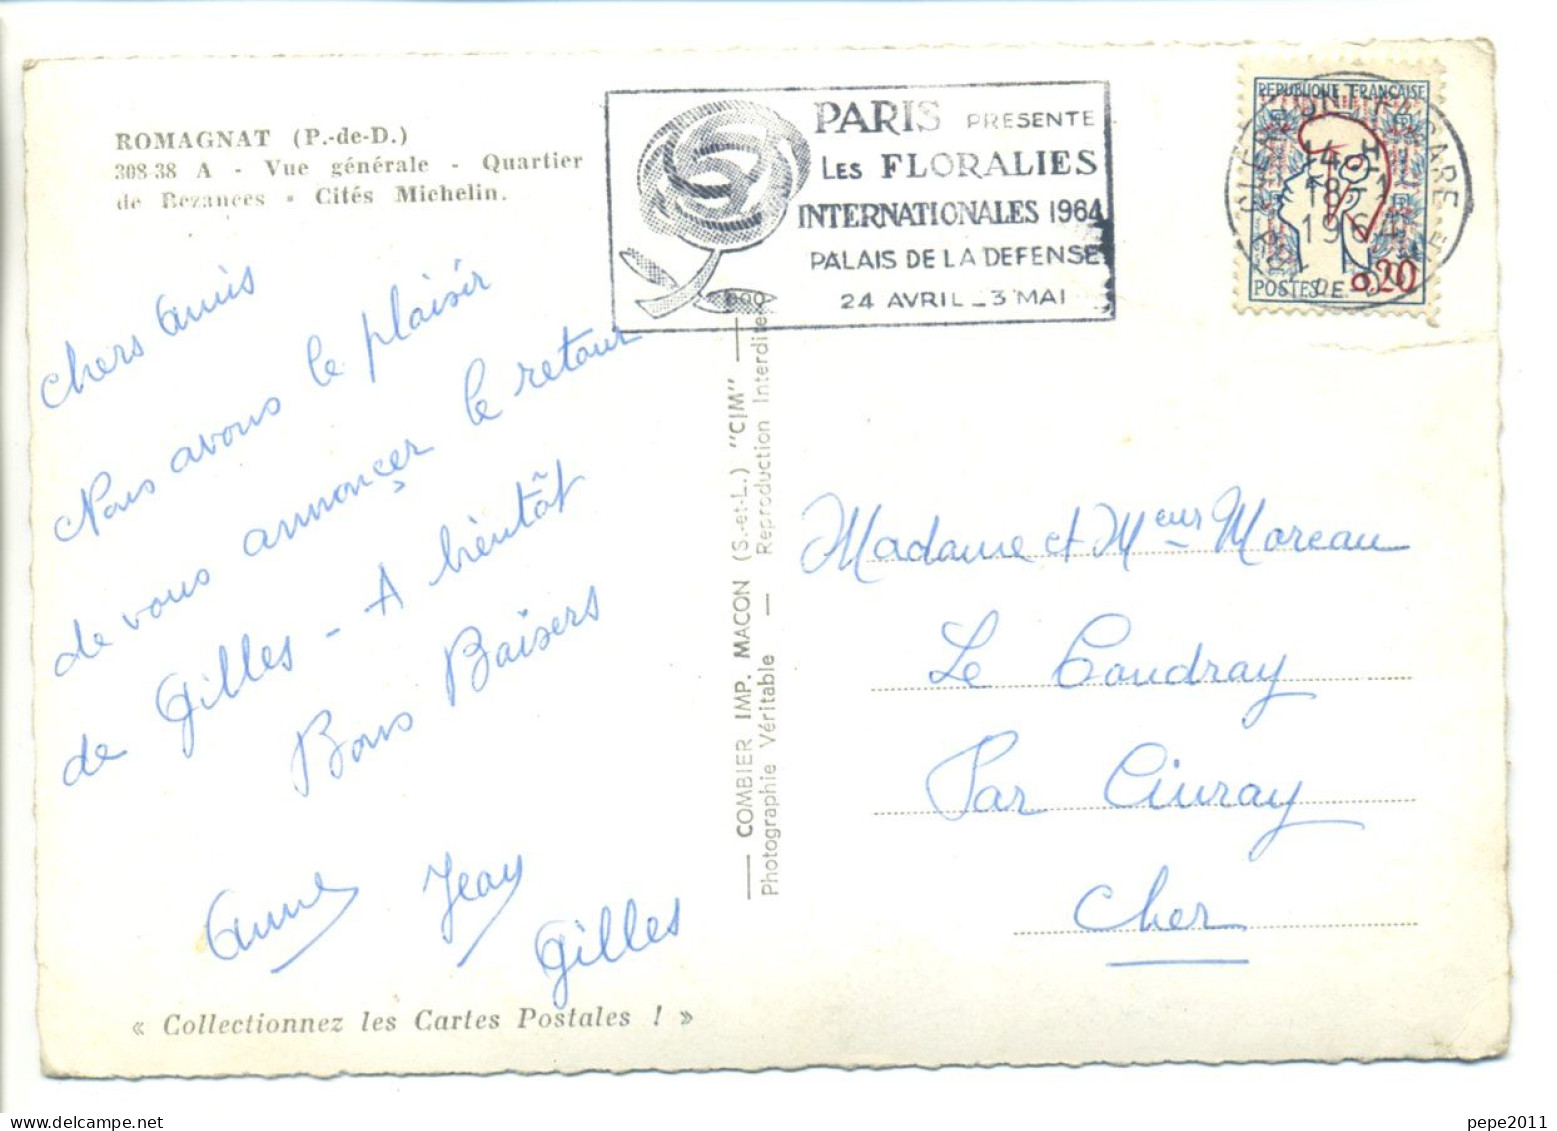 ROMAGNAT (P.-de-D.)
308-38 A - Vue générale - Quartier
de Bezances - Cités Michelin.
PARIS PRESENTE
LES FLORALIES
INTERNATIONALES 1964
PALAIS DE LA DEFENSE
24 AVRIL _ 3 MAI
REPUBLIQUE FRANÇAISE
POSTES
0,20
18
1964
GARE
Chers amis
Nous avons le plaisir
de vous annonçer le retour
de Gilles - A bientôt
Bons Baisers
Anne Jean
Gilles
« Collectionnez les Cartes Postales ! »
— COMBIER IMP. MACON (S.-et-L.) "CIM" —
Photographie Véritable — Reproduction Interdite
Madame et Meur Moreau
Le Coudray
Par Civray
Cher
pepe2011